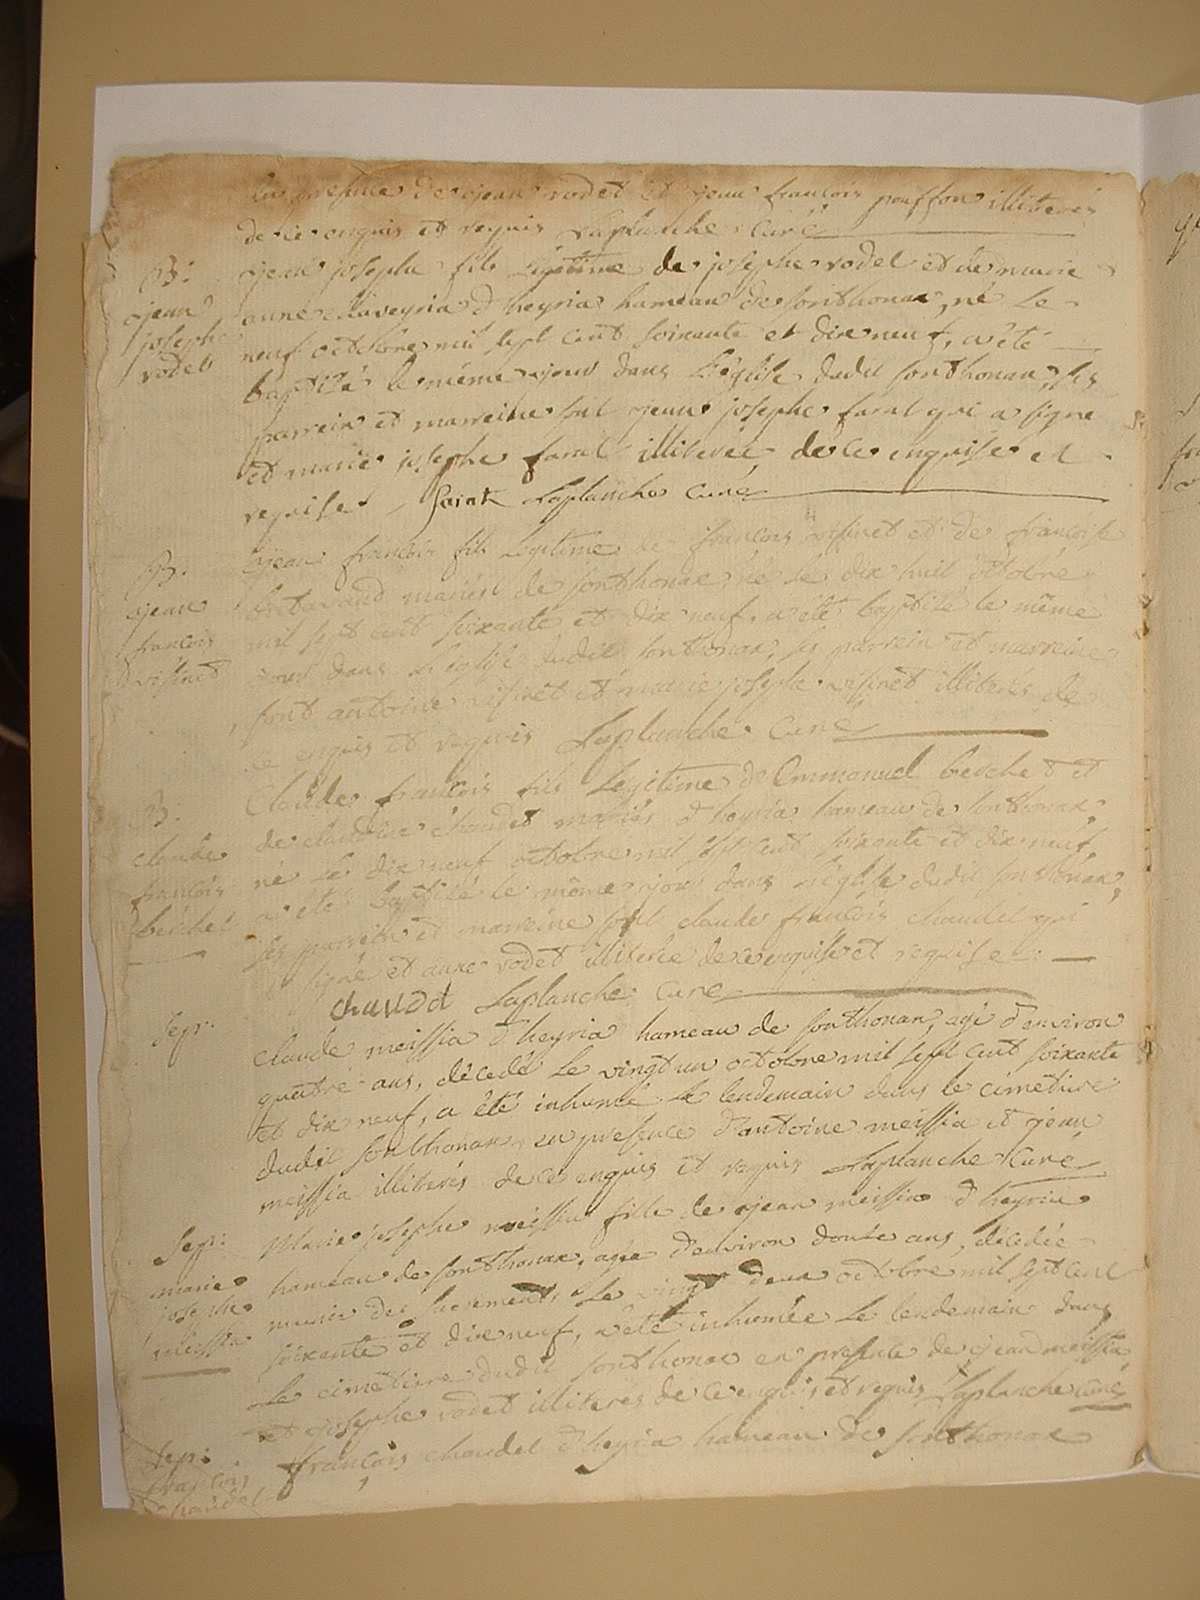 la presence de jean rodet et jean françois pouffon illiterés
de ce enquis et requis Laplanche Curé
B:
jean
josephe
rodet
jean josephe fils Légitime de josephe rodet et de marie
anne claveyria d'heyria hameau de sonthonax, né le
neuf octobre mil sept cent soixante et dix neuf, a été
baptizé le même jour dans L'église dudit sonthonax, ses
parrein et marreine sont jean josephe farat qui a signé
et marie josephe farat illiterée de ce enquise et
requise. farat Laplanche Curé
B.
jean
françois
visinet
jean françois fils Legitime de françois visinet et de françoise
mariés de sonthonax né le dix huit octobre
mil sept cent soixante et dix neuf, a été baptizé le même
jour dans L'église dudit sonthonax, ses parrein et marreine
sont antoine visinet et marie josephe visinet illiterés de
ce enquis et requis Laplanche Curé
B.
claude
françois
berchet
Claude françois fils Legitime d'Emmanuel berchet et
de claudine chaudet mariés d'heyria hameau de sonthonax,
né le dix neuf octobre mil sept cent soixante et dix neuf
a été baptizé le même jour dans L'église dudit sonthonax,
ses parrein et marreine sont claude françois chaudet qui
a signé et anne rodet illiterée de ce enquise et requise.
chaudet Laplanche Curé
Sepr:
claude meissia d'heyria hameau de sonthonax, agé d'environ
quatre ans, décedé le vingt un octobre mil sept cent soixante
et dix neuf, a été inhumé le lendemain dans le cimetiere
dudit sonthonax, en presence d'antoine meissia et jean
meissia illiterés de ce enquis et requis Laplanche Curé
Sepr:
marie
josephe
meissia
Marie josephe meissia fille de jean meissia d'heyria
hameau de sonthonax, agée d'environ douze ans, décedée
munie des sacrements le vingt deux octobre mil sept cent
soixante et dix neuf, a été inhumée le lendemain dans
Le cimetiere dudit sonthonax en presence de jean meissia
et josephe rodet illiterés de ce enquis et requis Laplanche Curé
Sepr:
françois
chaudet
françois chaudet d'heyria hameau de sonthonax